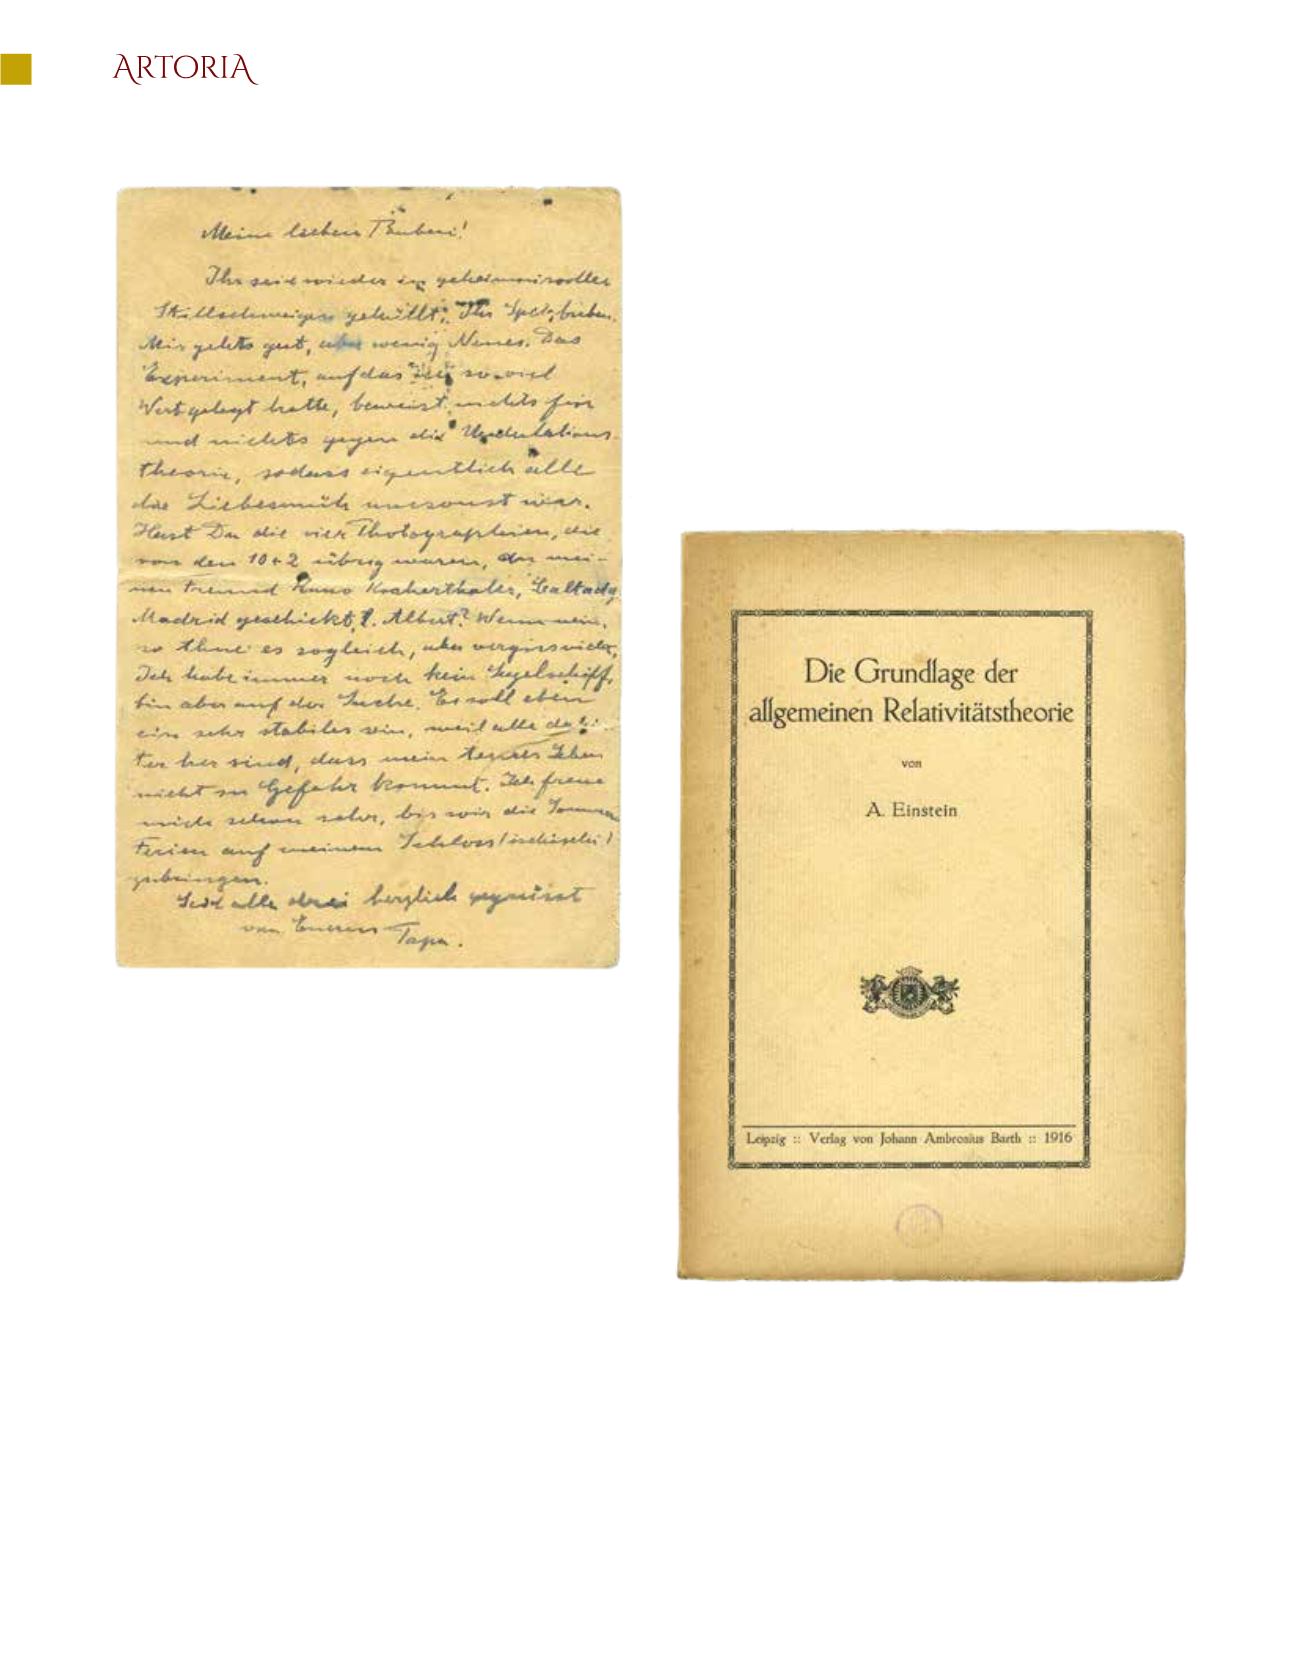 ARTORIA
Meine lieben Buben!
Ihr seid wieder in geheimnisvolles
Stillschweigen gehüllt, Ihr
Mir gehts gut, aber wenig Neues. Das
Experiment, auf das ich so viel
Wert gelegt hatte, beweist nichts für
und nichts gegen die Undulations-
theorie, sodass eigentlich alle
die Liebesmüh umsonst war.
Hast Du die vier Photographien, die
von den 10+2 übrig waren, an mei-
nen Freund Kuno Kocherthaler, Lealtad
Madrid geschickt, l. Albert? Wenn nein,
so thue es sogleich, aber vergiss nicht,
Ich habe immer noch kein Segelschiff,
bin aber auf der Suche. Es soll eben
ein sehr stabiles sein, weil alle dahin-
ter her sind, dass mein teures Leben
nicht in Gefahr kommt. Ich freue
mich schon sehr, bis wir die Sommer
Ferien auf meinem Schloss
zubringen.
Seid alle drei herzlich gegrüsst
von Eurem Papa.
Die Grundlage der
allgemeinen Relativitätstheorie
von
A. Einstein
Leipzig :: Verlag von Johann Ambrosius Barth :: 1916